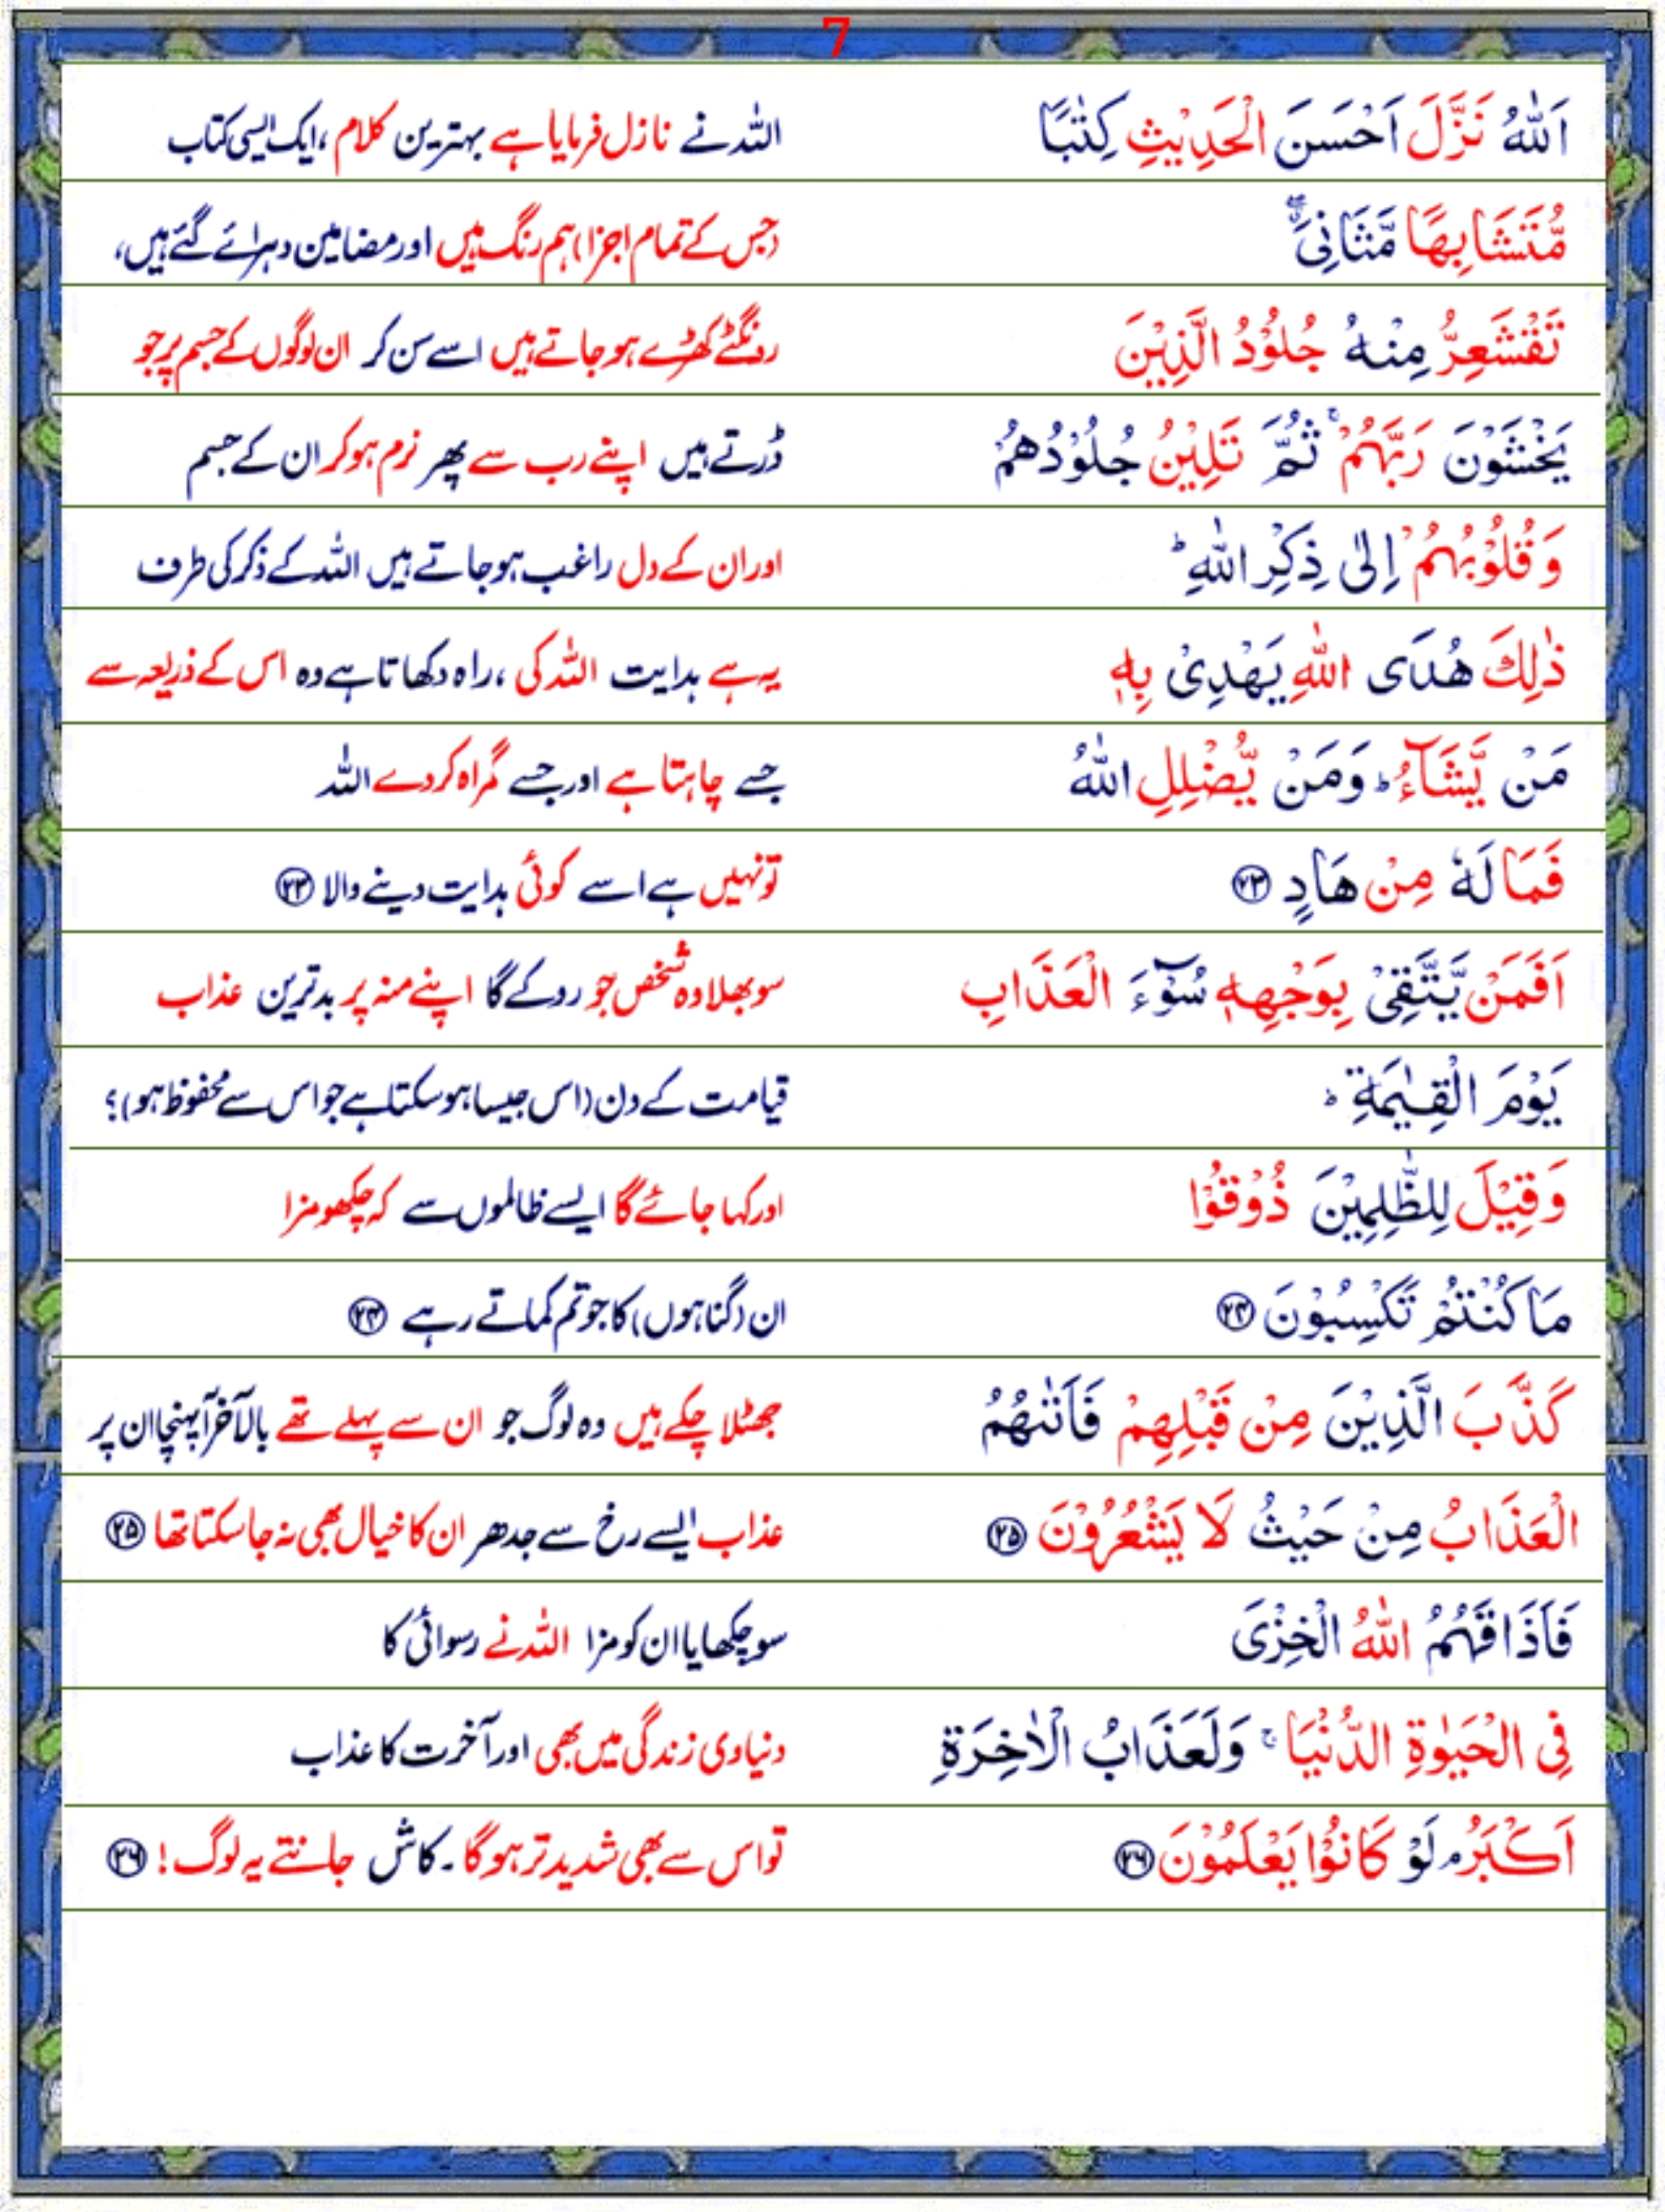 7
اَللّٰهُ نَزَّلَ اَحْسَنَ الْحَدِيْثِ كِتٰبًا اللہ نے نازل فرمایا ہے بہترین کلام ،ایک ایسی کتاب
مُّتَشَابِهًا مَّثَانِىَ ۖۗ (جس کے تمام اجزا) ہم رنگ ہیں اور مضامین دہرائے گئے ہیں،
تَقْشَعِرُّ مِنْهُ جُلُوْدُ الَّذِيْنَ رونگٹے کھڑے ہو جاتے ہیں اسے سن کر ان لوگوں کے جسم پر جو
يَخْشَوْنَ رَبَّهُمْ ۚ ثُمَّ تَلِيْنُ جُلُوْدُهُمْ ڈرتے ہیں اپنے رب سے پھر نرم ہو کر ان کے جسم
وَقُلُوْبُهُمْ اِلٰى ذِكْرِ اللّٰهِ ؕ اور ان کے دل راغب ہو جاتے ہیں اللہ کے ذکر کی طرف
ذٰلِكَ هُدَى اللّٰهِ يَهْدِىْ بِهٖ یہ ہے ہدایت اللہ کی ،راہ دکھاتا ہے وہ اس کے ذریعہ سے
مَنْ يَّشَآءُ ؕ وَمَنْ يُّضْلِلِ اللّٰهُ جسے چاہتا ہے اور جسے گمراہ کر دے اللہ
فَمَا لَهٗ مِنْ هَادٍ ۲۳ تو نہیں ہے اسے کوئی ہدایت دینے والا ۲۳
اَفَمَنْ يَّتَّقِىْ بِوَجْهِهٖ سُوْٓءَ الْعَذَابِ سو بھلا وہ شخص جو روکے گا اپنے منہ پر بدترین عذاب
يَوْمَ الْقِيٰمَةِ ؕ قیامت کے دن (اس جیسا ہو سکتا ہے جو اس سے محفوظ ہو)؟
وَقِيْلَ لِلظّٰلِمِيْنَ ذُوْقُوْا اور کہا جائے گا ایسے ظالموں سے کہ چکھو مزا
مَا كُنْتُمْ تَكْسِبُوْنَ ۲۴ ان (گناہوں) کا جو تم کماتے رہے ۲۴
كَذَّبَ الَّذِيْنَ مِنْ قَبْلِهِمْ فَاَتٰٮهُمُ جھٹلا چکے ہیں وہ لوگ جو ان سے پہلے تھے بالآخر آپہنچا ان پر
الْعَذَابُ مِنْ حَيْثُ لَا يَشْعُرُوْنَ ۲۵ عذاب ایسے رخ سے جدھر ان کا خیال بھی نہ جا سکتا تھا ۲۵
فَاَذَاقَهُمُ اللّٰهُ الْخِزْىَ سو چکھایا ان کو مزا اللہ نے رسوائی کا
فِى الْحَيٰوةِ الدُّنْيَا ۚ وَلَعَذَابُ الْاٰخِرَةِ دنیاوی زندگی میں بھی اور آخرت کا عذاب
اَكْبَرُ ۘ لَوْ كَانُوْا يَعْلَمُوْنَ ۲۶ تو اس سے بھی شدید تر ہو گا۔ کاش جانتے یہ لوگ! ۲۶